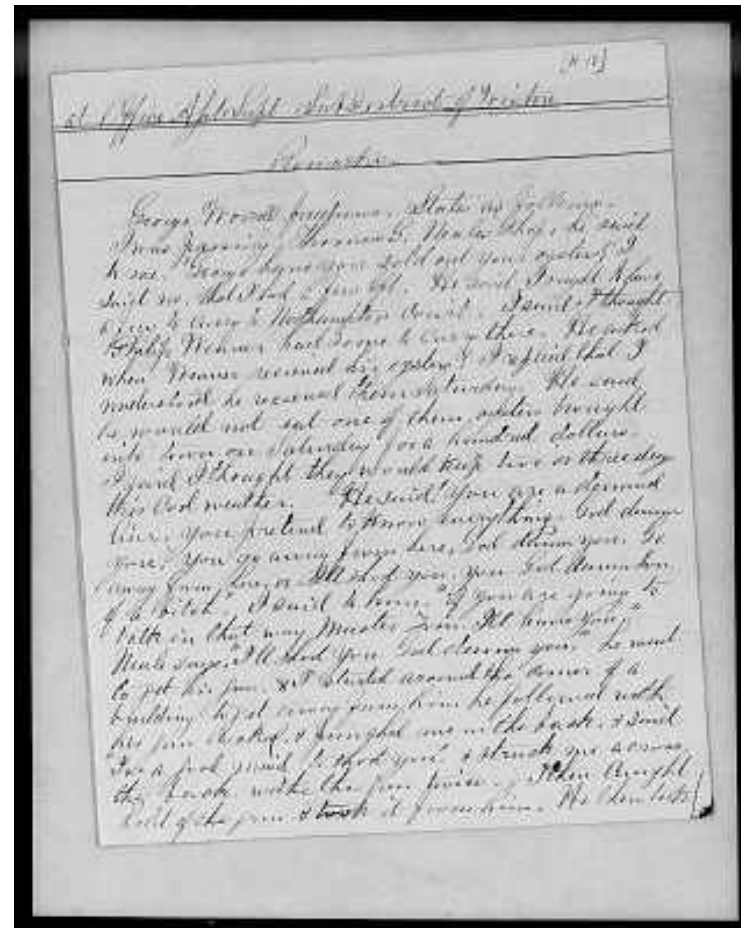 at Office Asst Supt Sub District of Trenton
Remarks
George Moore freedman. States as follows.
I was passing Thomas G. Neales shop, he said
to me, "George have you sold out your oysters? I
said no, that I had a few left. He said, I ought to have
a few to carry to Northampton Court. I said I thought
Philip Wehner had some to carry there. He asked
when Wehner received his oysters? I replied that I
understood he received them Saturday. He said,
he would not eat one of them oysters brought
into town on Saturday for a hundred dollars.
I said I thought they would keep two or three days
this cool weather. He said "You are a damned
liar, you pretend to know everything, God damn
you, you go away from here, God damn you. Go
away from here, or I'll shoot you, you God damn son
of a bitch", I said to him, "if you are going to
talk in that way Master Tom I'll leave you,"
Neale says, "I'll shoot you God damn you" he went
to get his gun, & I started around the corner of a
building to get away from him, he followed with
his gun cocked, & punched me in the back, & said
"For a
I'd shoot you" & struck me across
the back with the gun twice. I then caught
hold of the gun & took it from him. He then